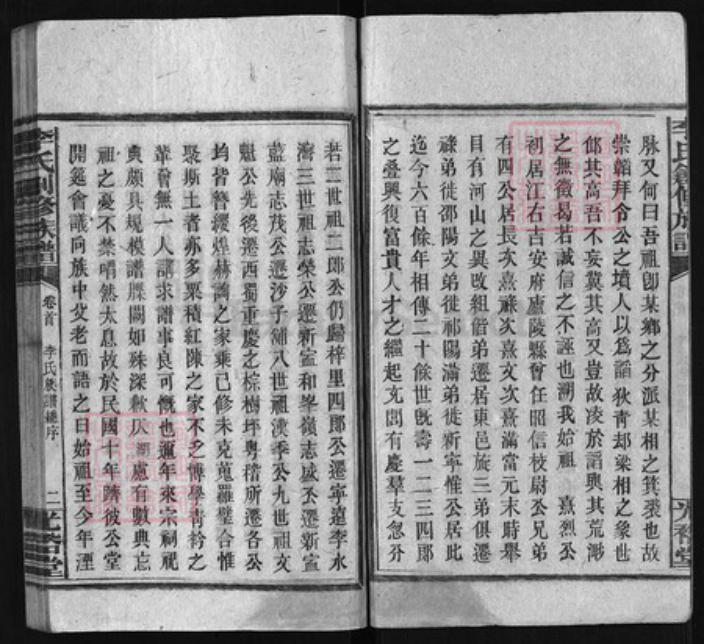 脉又何曰吾祖卽某鄉之分派某相之箕裘也故
崇韜拜令公之墳人以爲謟狄靑却梁相之象世
邵其高吾不妄冀其高又豈故凌於謟與其荒渺
之無徵曷若誠信之不誣也溯我始祖　熹烈公
初居江右吉安府廬陵縣曾任昭信校尉公兄弟
有四公居長次熹祿次熹文次熹滿當元末時舉
目有河山之異攺組偕弟遷居東邑旋三弟俱遷
祿弟徙邵陽文弟徙祁陽滿弟徙新寧惟公居此
迄今六百餘年相傳二十餘世旣壽一二三四郎
之叠興復富貴人才之繼起允閭有慶羣支忽分
若二世祖二郎公仍歸梓里四郎公遷寧遠李水
灣三世祖志榮公遷新寧和峯嶺志盛公遷新寧
藍廟志茂公遷沙子浦八世祖漢季公九世祖文
魁公先後遷西蜀重慶之棕樹坪粤稽所遷各公
均皆簪纓煌赫詢之家乘已修未克蒐羅璧合惟
聚斯土者亦多粟積紅陳之家不乏博學靑衿之
輩曾無一人講求譜事良可慨也邇年來宗祠祀
典頗具規模譜牒闕如殊深歉仄溯慮有數典忘
祖之憂不禁喟然太息故於民國十年躋彼公堂
開筵會議向族中父老而語之曰始祖至今年湮
李氏創修族譜
卷首　李氏族譜總序
二
光裕堂